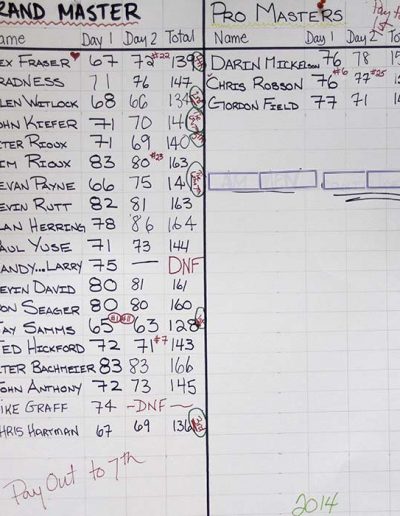 RAND MASTER
ame Day 1 Day 2 Total
EX FRASER 67 72 #22 139
RADNESS 71 76 147
LEN WITLOCK 68 66 134
OHN KIEFER 71 70 141
ETER RIOUX 71 69 140
IM RIOUX 83 80 #23 163
EVAN PAYNE 66 75 141
EVIN RUTT 82 81 163
LAN HERRING 78 86 164
AUL YUSE 71 73 144
ANDY...LARRY 75 — DNF
EVIN DAVID 80 81 161
ON SEAGER 80 80 160
AY SAMMS 65 #1 #11 63 128
ED HICKFORD 72 71 #7 143
ETER BACHMEIER 83 83 166
OHN ANTHONY 72 73 145
IKE GRAFF 74 -DNF-
HRIS HARTMAN 67 69 136
Pay Out to 7th
PRO MASTERS
Name Day 1 Day 2 T
DARIN MICKELSON 76 78 15
CHRIS ROBSON 76 #6 77 #25
GORDON FIELD 77 71 14
2014